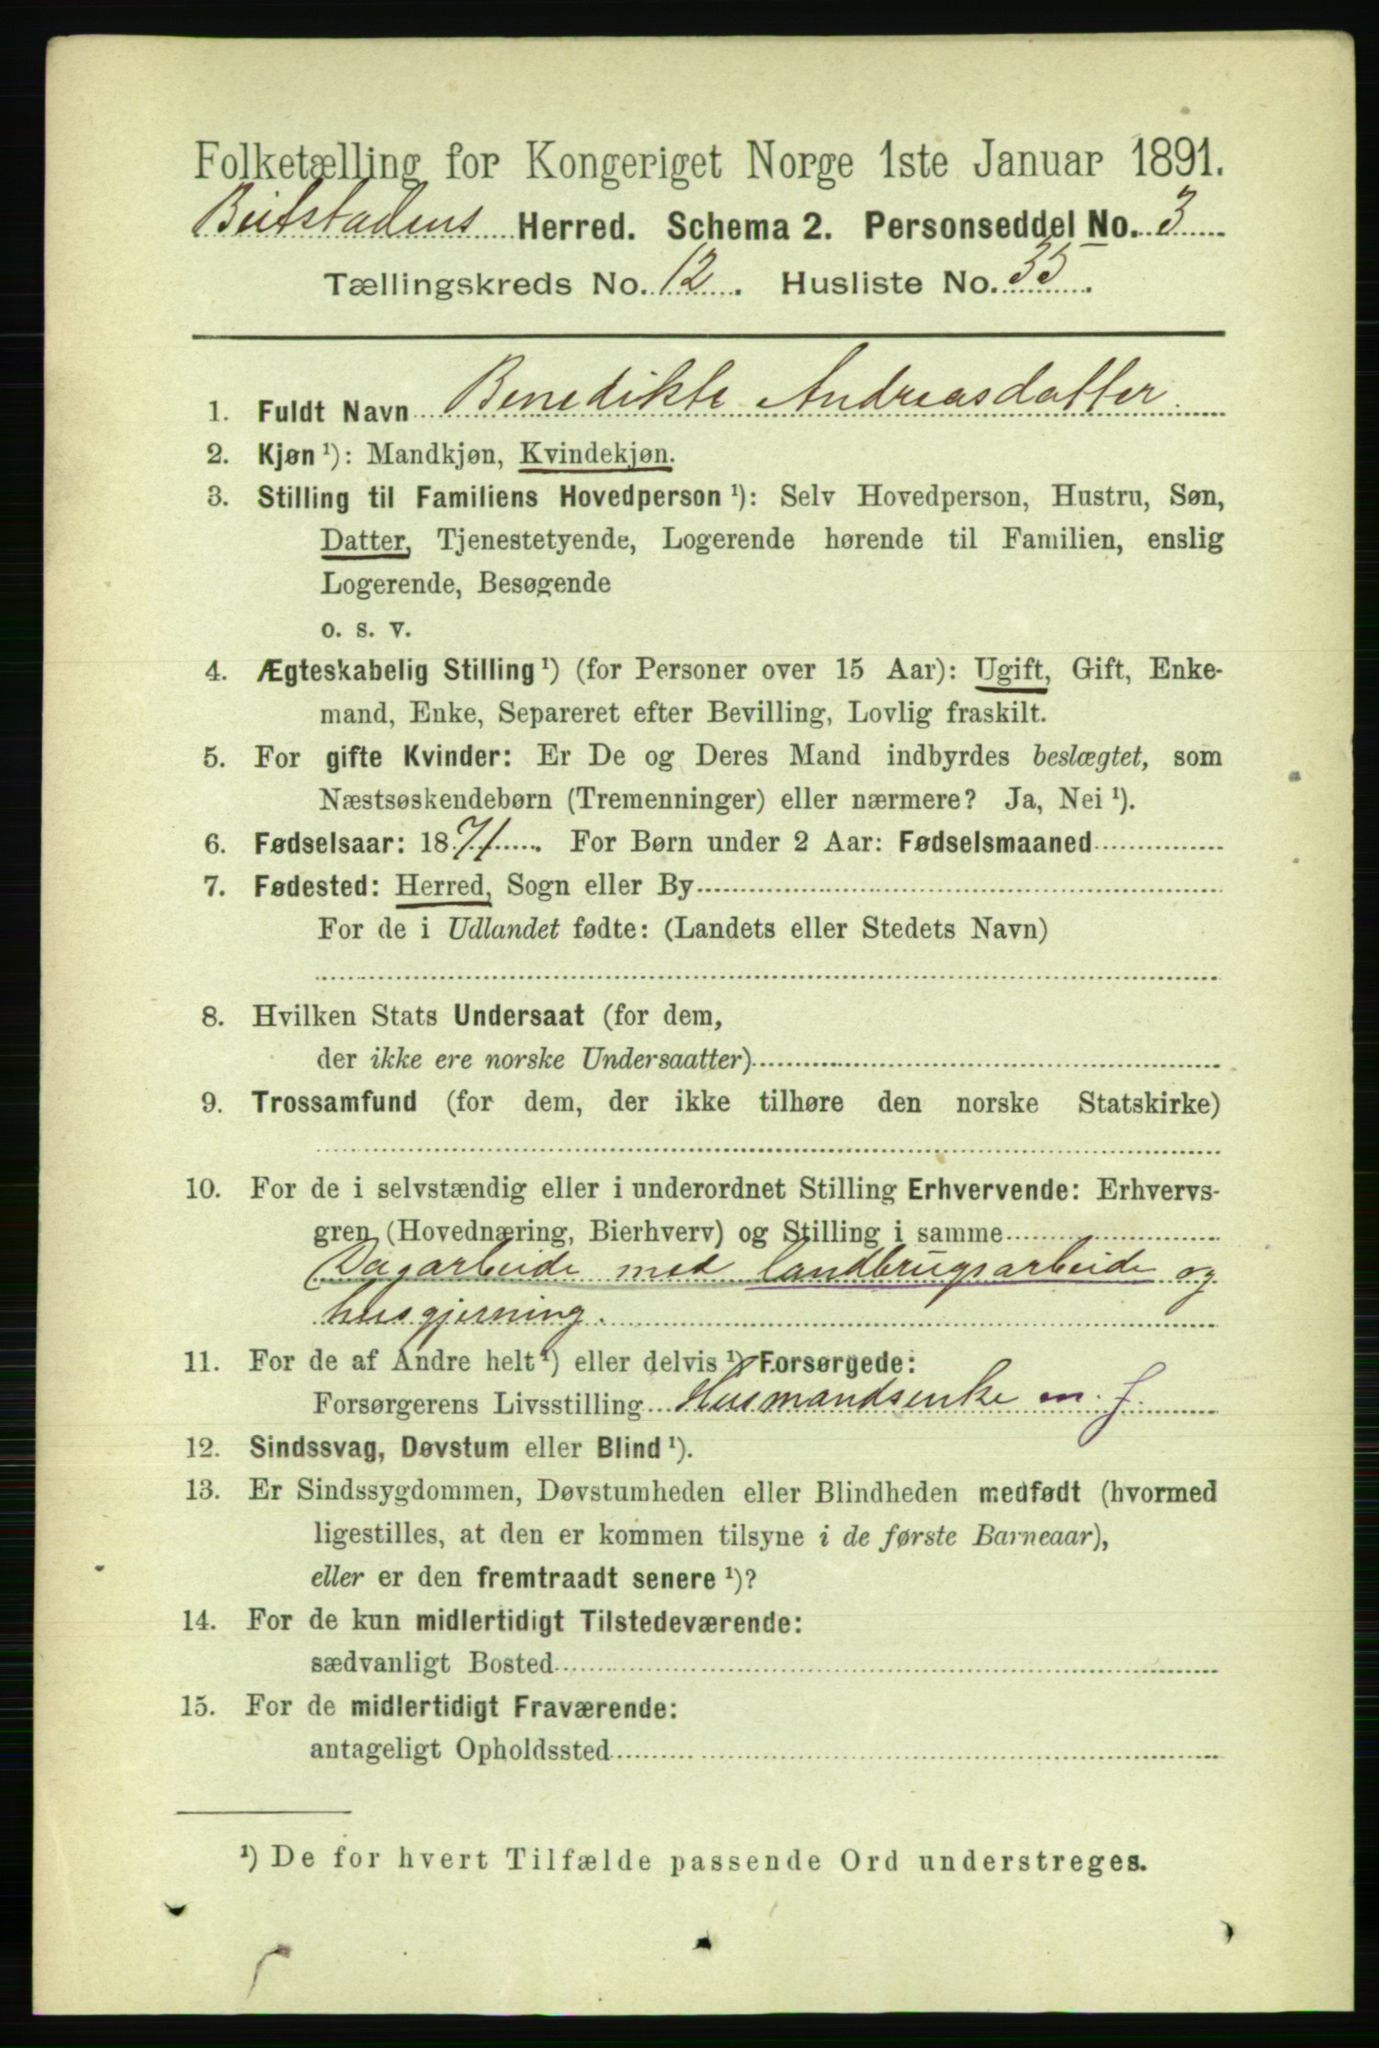 Folketælling for Kongeriget Norge 1ste Januar 1891.
Beitstadens Herred. Schema 2. Personseddel No. 3
Tællingskreds No. 12. Husliste No. 35.
1. Fuldt Navn Benedikte Andreasdatter.
2. Kjøn ¹): Mandkjøn, Kvindekjøn.
3. Stilling til Familiens Hovedperson ¹): Selv Hovedperson, Hustru, Søn,
Datter, Tjenestetyende, Logerende hørende til Familien, enslig
Logerende, Besøgende
o. s. v.
4. Ægteskabelig Stilling ¹) (for Personer over 15 Aar): Ugift, Gift, Enke-
mand, Enke, Separeret efter Bevilling, Lovlig fraskilt.
5. For gifte Kvinder: Er De og Deres Mand indbyrdes beslægtet, som
Næstsøskendebørn (Tremenninger) eller nærmere? Ja, Nei ¹).
6. Fødselsaar: 1871. For Børn under 2 Aar: Fødselsmaaned
7. Fødested: Herred, Sogn eller By
For de i Udlandet fødte: (Landets eller Stedets Navn)
8. Hvilken Stats Undersaat (for dem,
der ikke ere norske Undersaatter)
9. Trossamfund (for dem, der ikke tilhøre den norske Statskirke)
10. For de i selvstændig eller i underordnet Stilling Erhvervende: Erhvervs-
gren (Hovednæring, Bierhverv) og Stilling i samme
Dagarbeide med landbrugsarbeide og
husgjerning.
11. For de af Andre helt ¹) eller delvis ¹) Forsørgede:
Forsørgerens Livsstilling Husmandsenke m. j.
12. Sindssvag, Døvstum eller Blind ¹).
13. Er Sindssygdommen, Døvstumheden eller Blindheden medfødt (hvormed
ligestilles, at den er kommen tilsyne i de første Barneaar),
eller er den fremtraadt senere ¹)?
14. For de kun midlertidigt Tilstedeværende:
sædvanligt Bosted
15. For de midlertidigt Fraværende:
antageligt Opholdssted
¹) De for hvert Tilfælde passende Ord understreges.